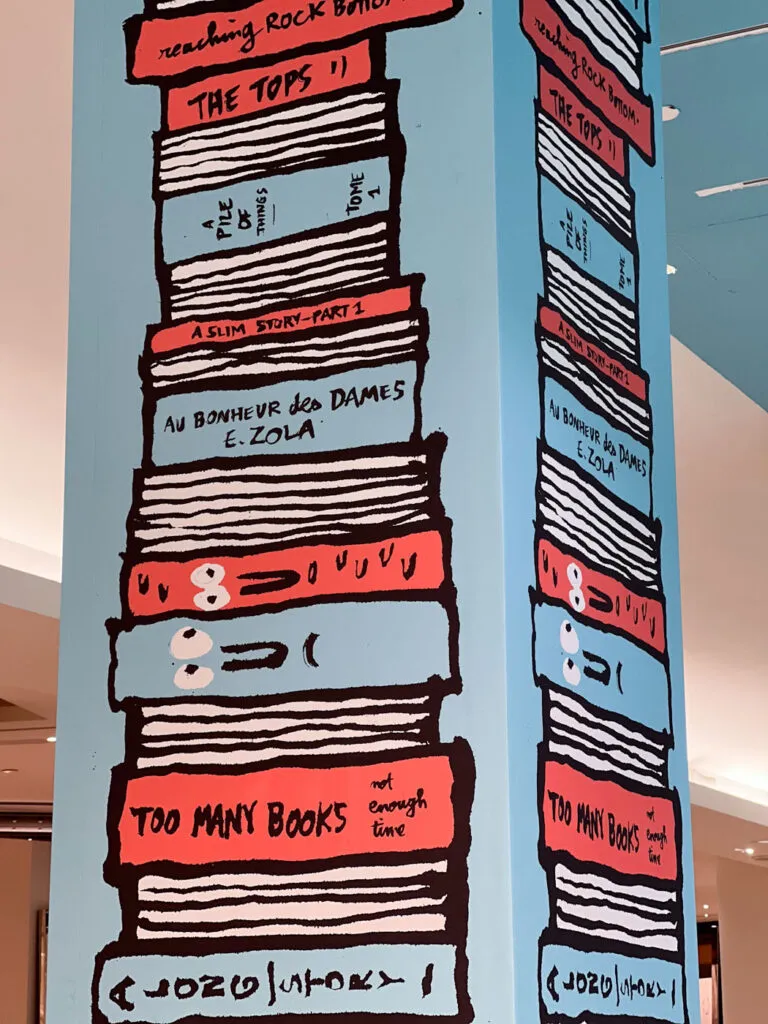 reaching ROCK BOTTOM.
THE TOPS !)
A
PILE
OF
THINGS
TOME
1
A SLIM STORY-PART 1
AU BONHEUR des DAMES
E. ZOLA
TOO MANY BOOKS
not
enough
time
A LONG STORY
reaching ROCK BOTTOM.
THE TOPS !)
A
PILE
OF
THINGS
TOME
1
A SLIM STORY-PART 1
AU BONHEUR des DAMES
E. ZOLA
TOO MANY BOOKS
not
enough
time
A LONG STORY